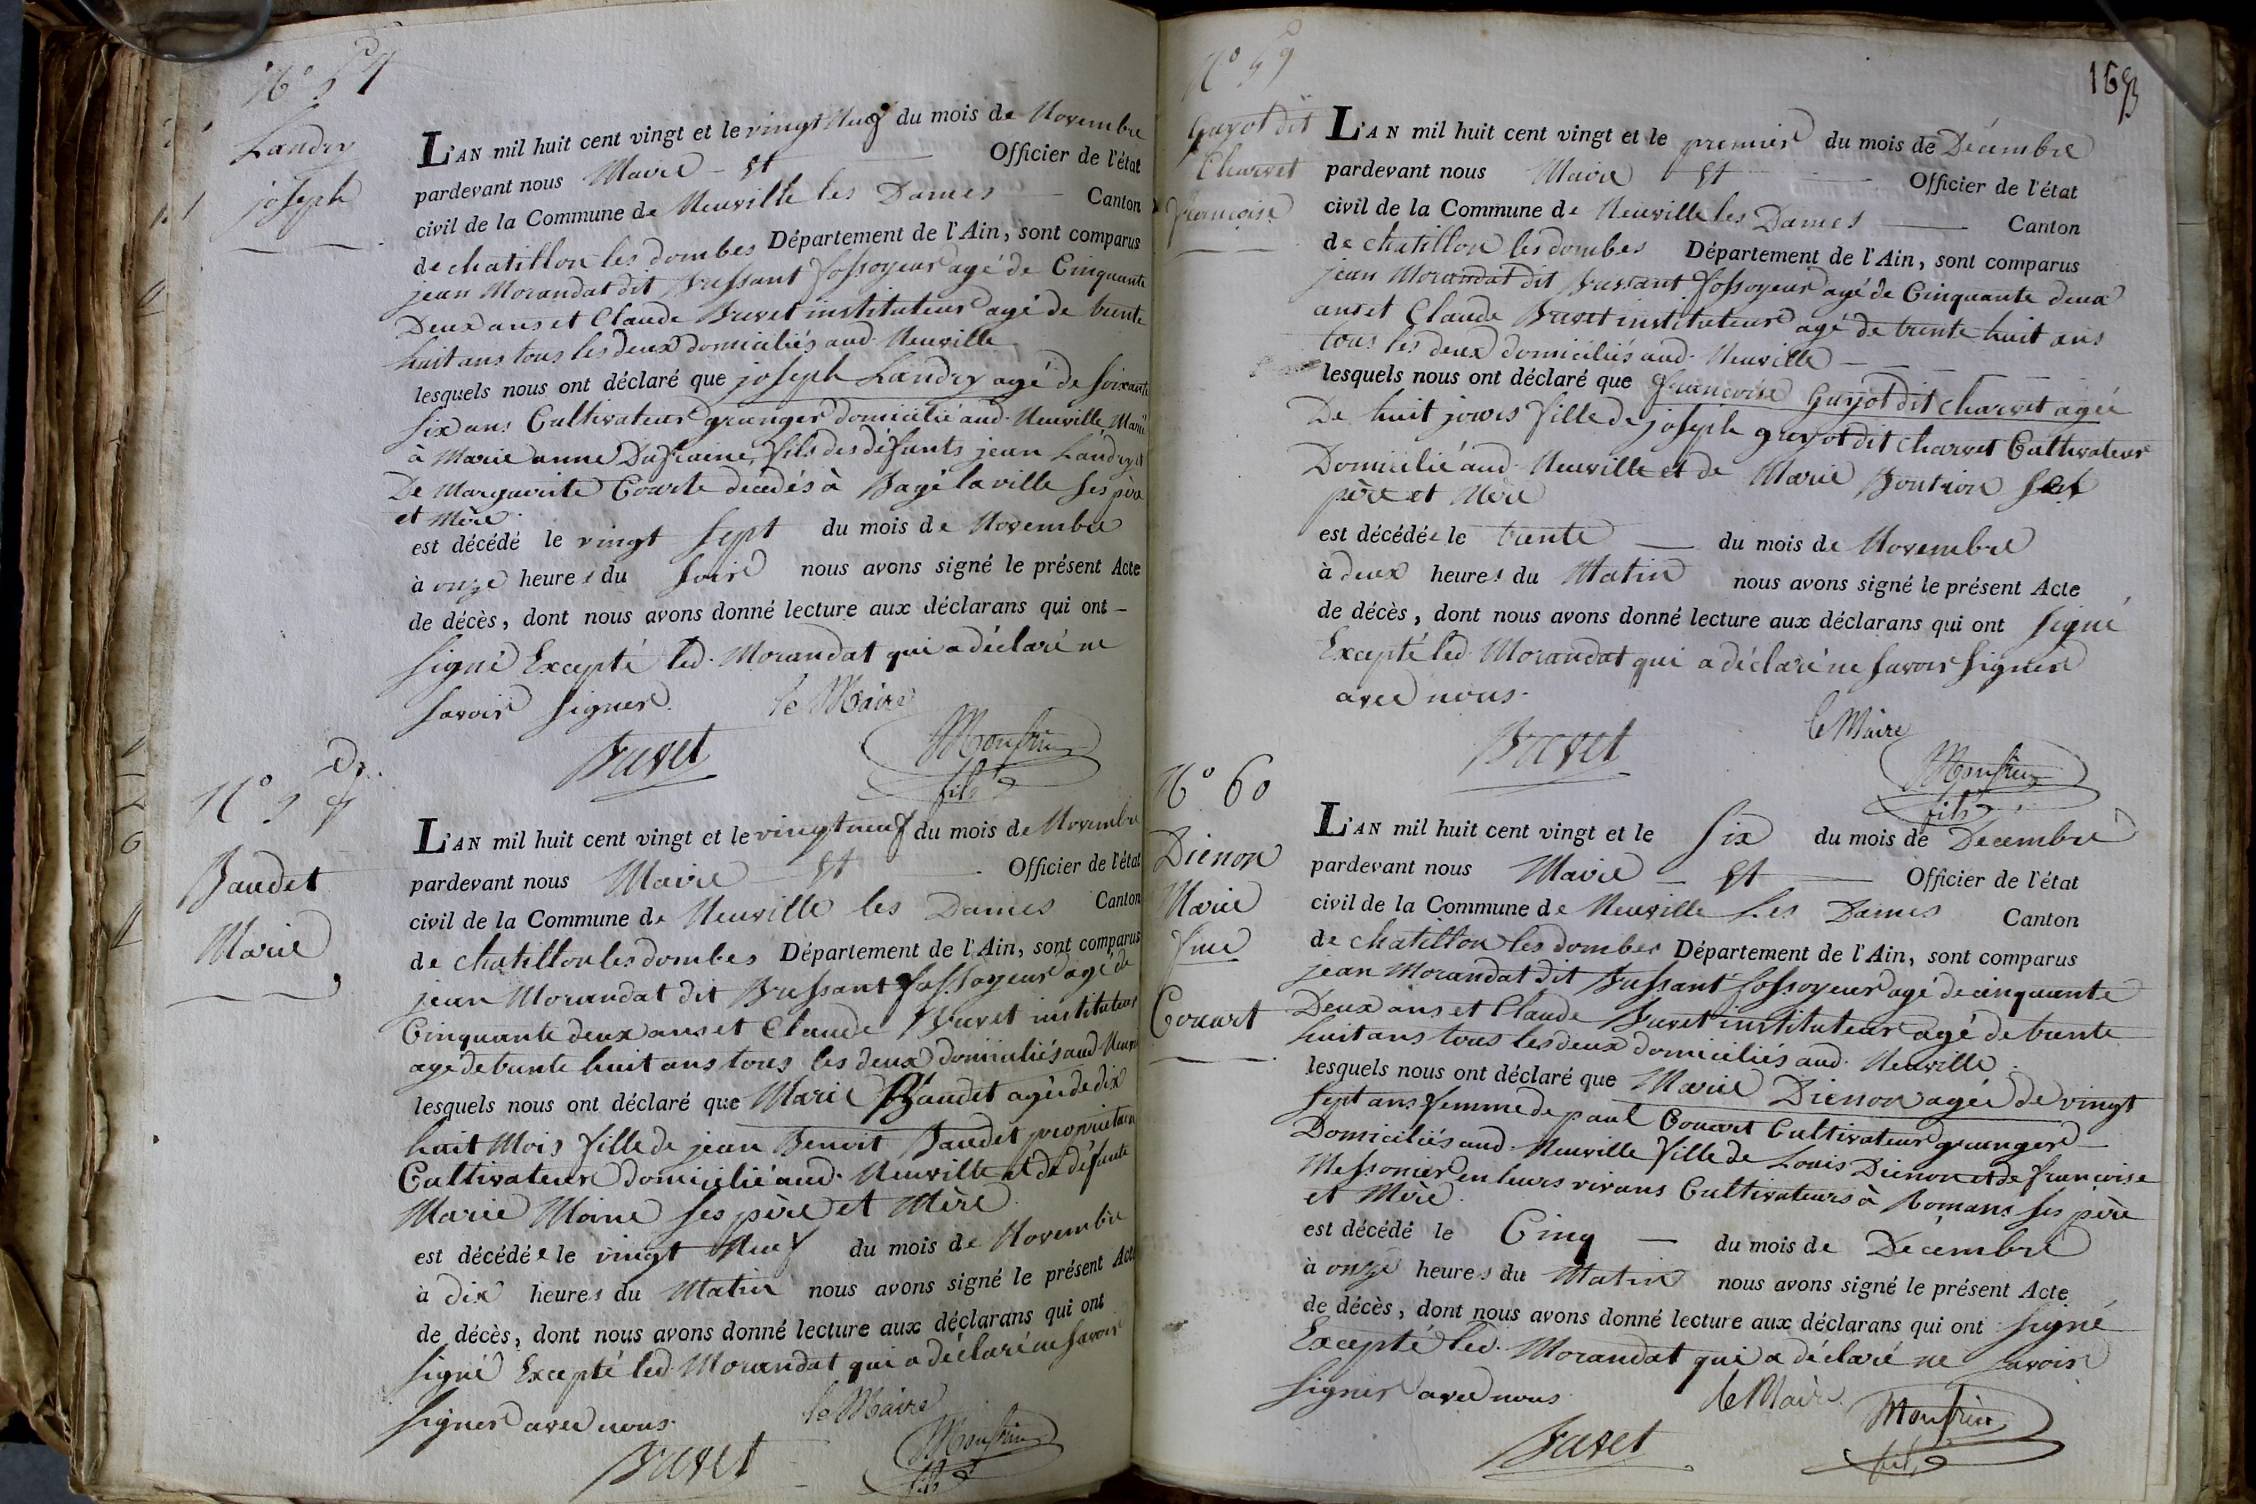 N° 57
Landry
joseph
L'AN mil huit cent vingt et le vingt Neuf du mois de Novembre
pardevant nous Maire - Et Officier de l'état
civil de la Commune de Neuville les Dames - Canton
de chatillon les dombes Département de l'Ain, sont comparus
jean Morandat dit Bressant fossoyeur agé de Cinquante
Deux ans et Claude Buvet instituteur agé de trente
huit ans tous les deux domiciliés aud. Neuville
lesquels nous ont déclaré que joseph Landry agé de soixante
six ans Cultivateur granger domicilié aud. Neuville, Marié
a Marie anne Dufraine, fils des défunts jean Landry et
De Marguerite Courte decedés à Bagé la ville ses père
et Mère.
est décédé le vingt sept du mois de Novembre
à onze heures du soir nous avons signé le présent Acte
de décès, dont nous avons donné lecture aux déclarans qui ont -
signé Excepté led. Morandat qui a déclaré ne
savoir signer. le Maire
Buvet Monfrin
fils
N° 58
Baudet
Marie
L'AN mil huit cent vingt et le vingt neuf du mois de Novembre
pardevant nous Maire Et - Officier de l'état
civil de la Commune de Neuville les Dames Canton
de chatillon les dombes Département de l'Ain, sont comparus
jean Morandat dit Bressant fossoyeur agé de
Cinquante deux ans et Claude Buvet instituteur
agé de trente huit ans tous les deux domiciliés aud. Neuville
lesquels nous ont déclaré que Marie Baudet agée de dix
huit Mois fille de jean Benoit Baudet proprietaire
Cultivateur domicilié aud. Neuville et de défunte
Marie Moine ses père et Mère
est décédée le vingt Neuf du mois de Novembre
à dix heures du Matin nous avons signé le présent Acte
de décès, dont nous avons donné lecture aux déclarans qui ont
signé Excepté led. Morandat qui a déclaré ne savoir
signer avec nous. le Maire
Buvet Monfrin
fils
N° 59
Guyot dit
Charvet
françoise
L'AN mil huit cent vingt et le premier du mois de Décembre
pardevant nous Maire Et - Officier de l'état
civil de la Commune de Neuville les Dames - Canton
de chatillon les dombes Département de l'Ain, sont comparus
jean Morandat dit Bressant fossoyeur agé de Cinquante deux
ans et Claude Buvet instituteur agé de trente huit ans
tous les deux domiciliés aud. Neuville -
lesquels nous ont déclaré que françoise Guyot dit Charvet agée
De huit jours fille de joseph guyot dit charvet Cultivateur
Domicilié aud. Neuville et de Marie Boution ses
père et Mère
est décédée le trente - du mois de Novembre
à deux heures du Matin nous avons signé le présent Acte
de décès, dont nous avons donné lecture aux déclarans qui ont signé
Excepté led. Morandat qui a déclaré ne savoir signer
avec nous.
le Maire
Buvet Monfrin
fils
N° 60
Dienon
Marie
fme
Couart
L'AN mil huit cent vingt et le six du mois de Décembre
pardevant nous Maire - Et - Officier de l'état
civil de la Commune de Neuville Les Dames Canton
de chatillon les dombes Département de l'Ain, sont comparus
jean Morandat dit Bressant fossoyeur agé de cinquante
Deux ans et Claude Buvet instituteur agé de trente
huit ans tous les deux domiciliés aud. Neuville.
lesquels nous ont déclaré que Marie Dienon agée de vingt
sept ans femme de paul Couart Cultivateur granger
Domiciliés aud. Neuville fille de Louis Dienon et de françoise
Messonier en leurs vivans Cultivateurs à Romans ses père
et Mère.
est décédé le Cinq - du mois de Décembre
à onze heures du Matin nous avons signé le présent Acte
de décès, dont nous avons donné lecture aux déclarans qui ont signé
Excepté led. Morandat qui a déclaré ne savoir
signer avec nous. le Maire.
Buvet Monfrin
fils